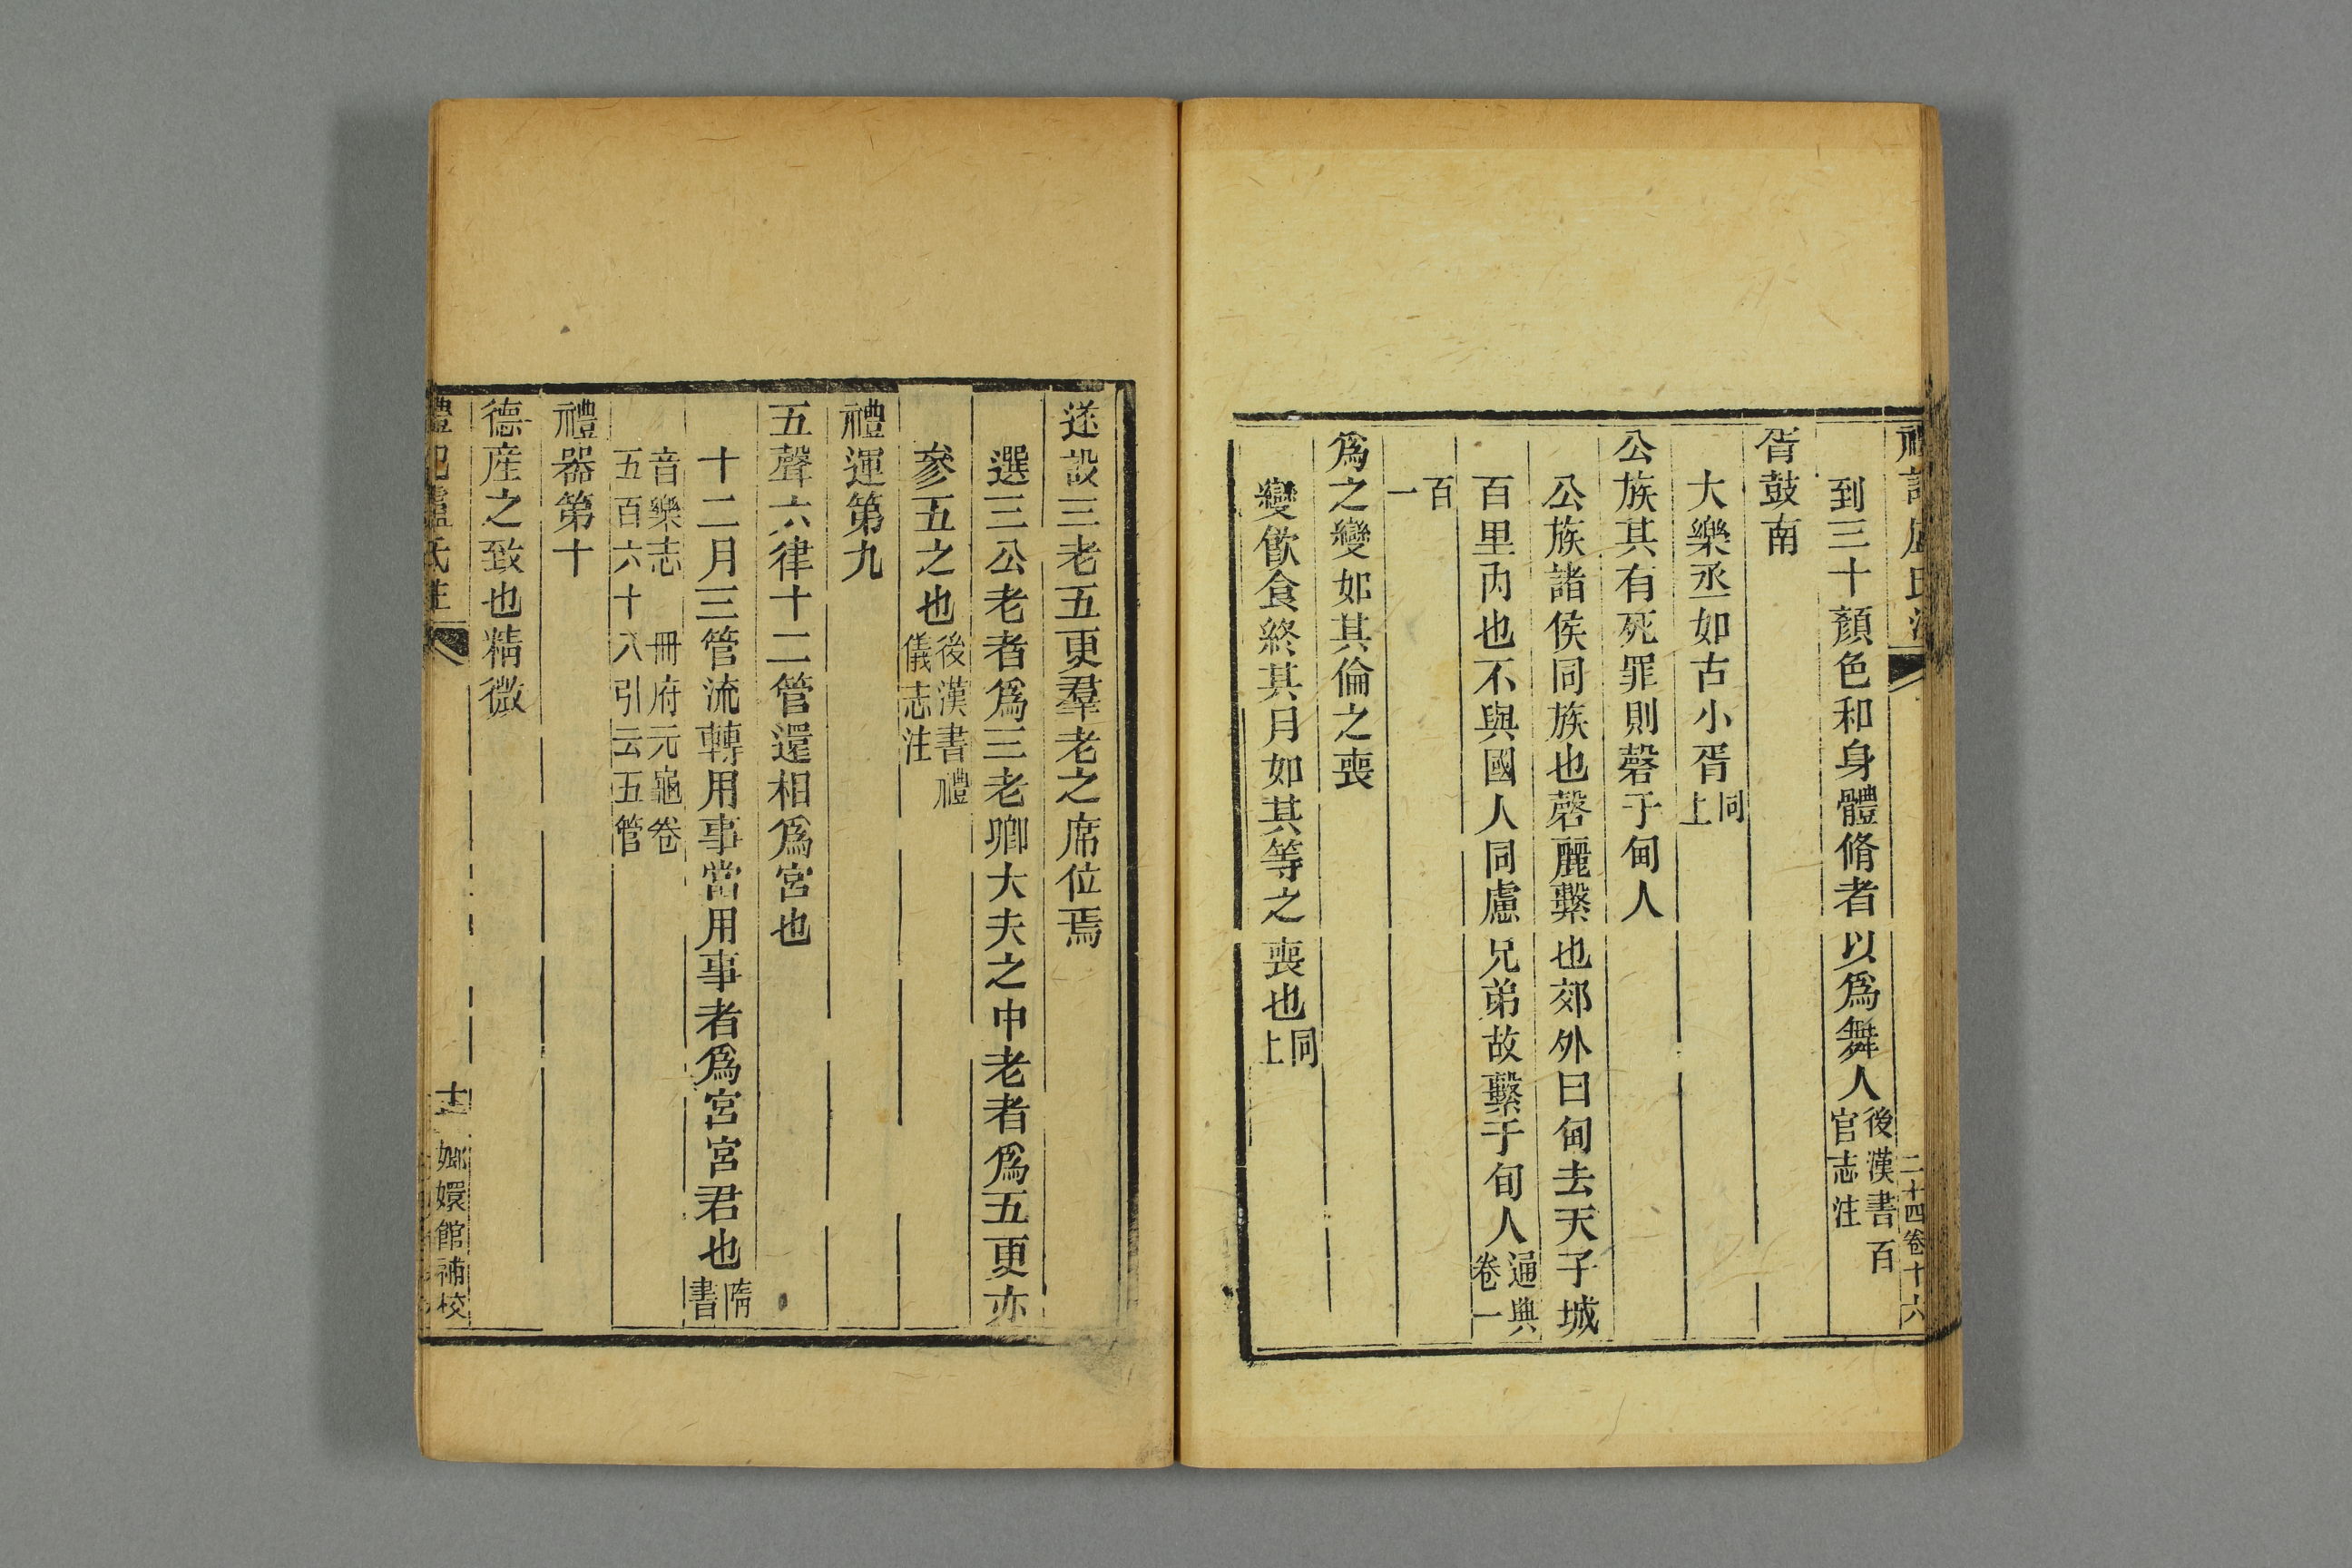 禮記盧氏注 二十四卷十六
到三十顏色和身體脩者以爲舞人後漢書百官志注
胥鼓南
大樂丞如古小胥同上
公族其有死罪則磬于甸人
公族諸侯同族也磬麗繫也郊外曰甸去天子城
百里內也不與國人同慮兄弟故繫于旬人通典卷一
百一
爲之變如其倫之喪
變飮食終其月如其等之喪也同上
遂設三老五更羣老之席位焉
選三公老者爲三老卿大夫之中老者爲五更亦
參五之也後漢書禮儀志注
禮運第九
五聲六律十二管還相爲宮也
十二月三管流轉用事當用事者爲宮宮君也隋書
音樂志 冊府元龜卷五百六十八引云五管
禮器第十
德産之致也精微
禮記盧氏注 嫏嬛館補校